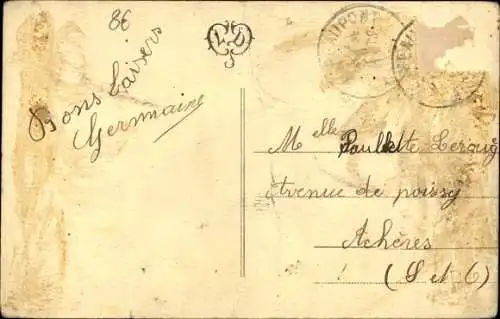 86
L D
DUPONT
Bons baisers
Germaine
Melle Paulette Leroux
Avenue de poissy
Achères
(S et O)